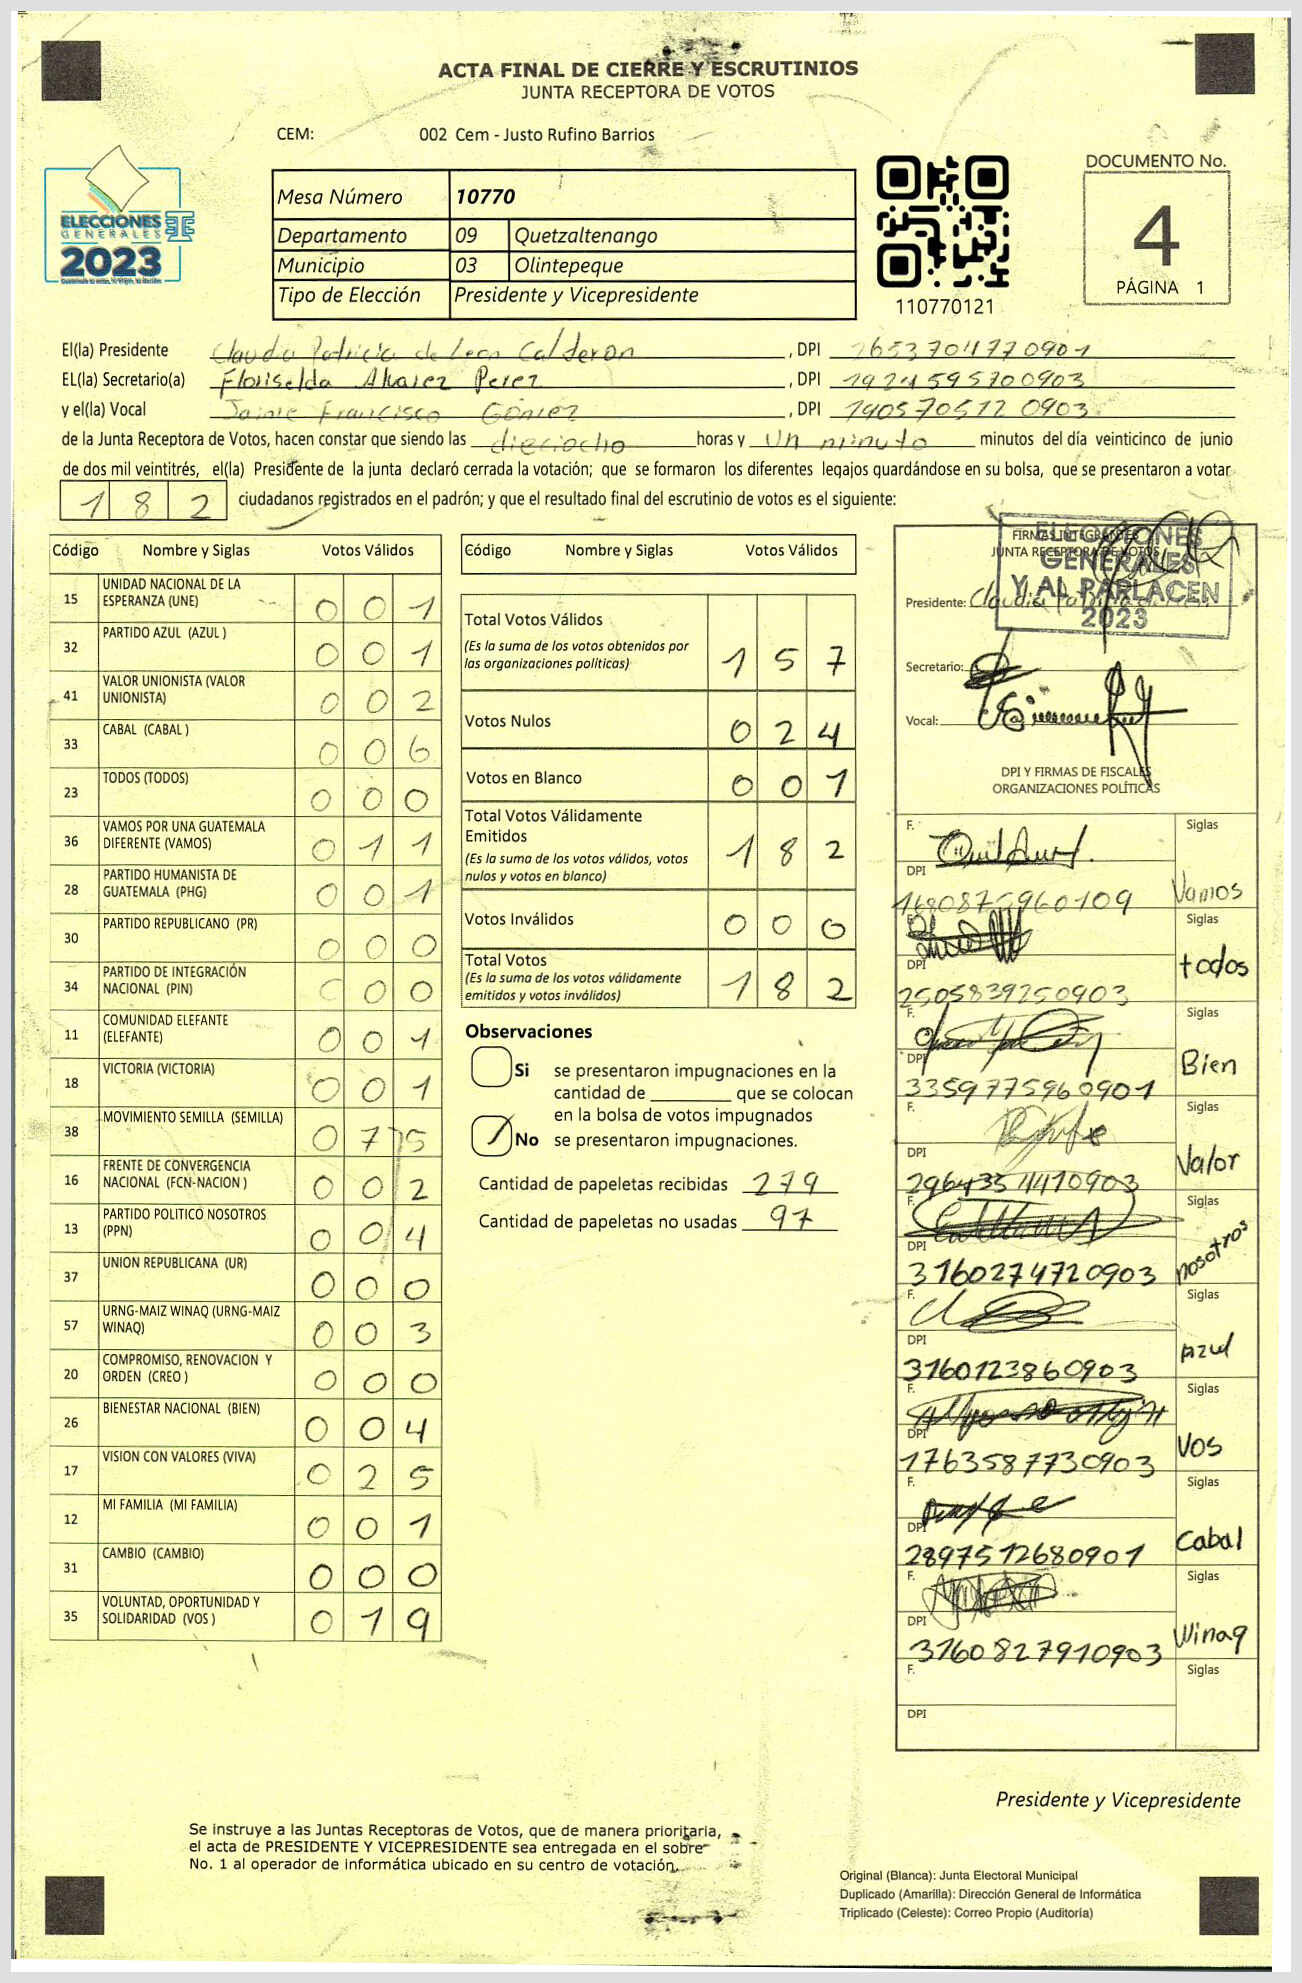 ACTA FINAL DE CIERRE Y ESCRUTINIOS
JUNTA RECEPTORA DE VOTOS
CEM: 002 Cem - Justo Rufino Barrios
ELECCIONES
GENERALES
2023
Mesa Número 10770
Departamento 09 Quetzaltenango
Municipio 03 Olintepeque
Tipo de Elección Presidente y Vicepresidente
110770121
DOCUMENTO No.
4
PÁGINA 1
El(la) Presidente Claudia Patricia de Leon Calderon , DPI 2653704770901
EL(la) Secretario(a) Floriselda Alvarez Perez , DPI 1924595700903
y el(la) Vocal Jaime Francisco Gómez , DPI 1905705120903
de la Junta Receptora de Votos, hacen constar que siendo las dieciocho horas y un minuto minutos del día veinticinco de junio
de dos mil veintitrés, el(la) Presidente de la junta declaró cerrada la votación; que se formaron los diferentes legajos guardándose en su bolsa, que se presentaron a votar
182 ciudadanos registrados en el padrón; y que el resultado final del escrutinio de votos es el siguiente:
Código Nombre y Siglas Votos Válidos
15 UNIDAD NACIONAL DE LA ESPERANZA (UNE) 001
32 PARTIDO AZUL (AZUL ) 001
41 VALOR UNIONISTA (VALOR UNIONISTA) 002
33 CABAL (CABAL ) 006
23 TODOS (TODOS) 000
36 VAMOS POR UNA GUATEMALA DIFERENTE (VAMOS) 011
28 PARTIDO HUMANISTA DE GUATEMALA (PHG) 001
30 PARTIDO REPUBLICANO (PR) 000
34 PARTIDO DE INTEGRACIÓN NACIONAL (PIN) 000
11 COMUNIDAD ELEFANTE (ELEFANTE) 001
18 VICTORIA (VICTORIA) 001
38 MOVIMIENTO SEMILLA (SEMILLA) 075
16 FRENTE DE CONVERGENCIA NACIONAL (FCN-NACION ) 002
13 PARTIDO POLITICO NOSOTROS (PPN) 004
37 UNION REPUBLICANA (UR) 000
57 URNG-MAIZ WINAQ (URNG-MAIZ WINAQ) 003
20 COMPROMISO, RENOVACION Y ORDEN (CREO ) 000
26 BIENESTAR NACIONAL (BIEN) 004
17 VISION CON VALORES (VIVA) 025
12 MI FAMILIA (MI FAMILIA) 001
31 CAMBIO (CAMBIO) 000
35 VOLUNTAD, OPORTUNIDAD Y SOLIDARIDAD (VOS ) 019
Código Nombre y Siglas Votos Válidos
Total Votos Válidos
(Es la suma de los votos obtenidos por
las organizaciones politicas) 157
Votos Nulos 024
Votos en Blanco 001
Total Votos Válidamente
Emitidos
(Es la suma de los votos válidos, votos
nulos y votos en blanco) 182
Votos Inválidos 000
Total Votos
(Es la suma de los votos válidamente
emitidos y votos inválidos) 182
Observaciones
Si se presentaron impugnaciones en la
cantidad de ________ que se colocan
en la bolsa de votos impugnados
No se presentaron impugnaciones.
Cantidad de papeletas recibidas 279
Cantidad de papeletas no usadas 97
FIRMAS INTEGRANTES
JUNTA RECEPTORA DE VOTOS
ELECCIONES
GENERALES
Y AL PARLACEN
2023
Presidente: Claudia
Secretario:
Vocal:
DPI Y FIRMAS DE FISCALES
ORGANIZACIONES POLÍTICAS
F. Siglas
DPI 1680875960109 Vamos
F. Siglas
DPI 2505839250903 todos
F. Siglas
DPI 3359775960901 Bien
F. Siglas
DPI 2964354410903 Valor
F. Siglas
DPI 3160274720903 nosotros
F. Siglas
DPI 3160123860903 Azul
F. Siglas
DPI 1763587730903 Vos
F. Siglas
DPI 2897512680901 Cabal
F. Siglas
DPI 3160827910903 Winaq
F. Siglas
DPI
Presidente y Vicepresidente
Se instruye a las Juntas Receptoras de Votos, que de manera prioritaria,
el acta de PRESIDENTE Y VICEPRESIDENTE sea entregada en el sobre
No. 1 al operador de informática ubicado en su centro de votación.
Original (Blanca): Junta Electoral Municipal
Duplicado (Amarilla): Dirección General de Informática
Triplicado (Celeste): Correo Propio (Auditoría)